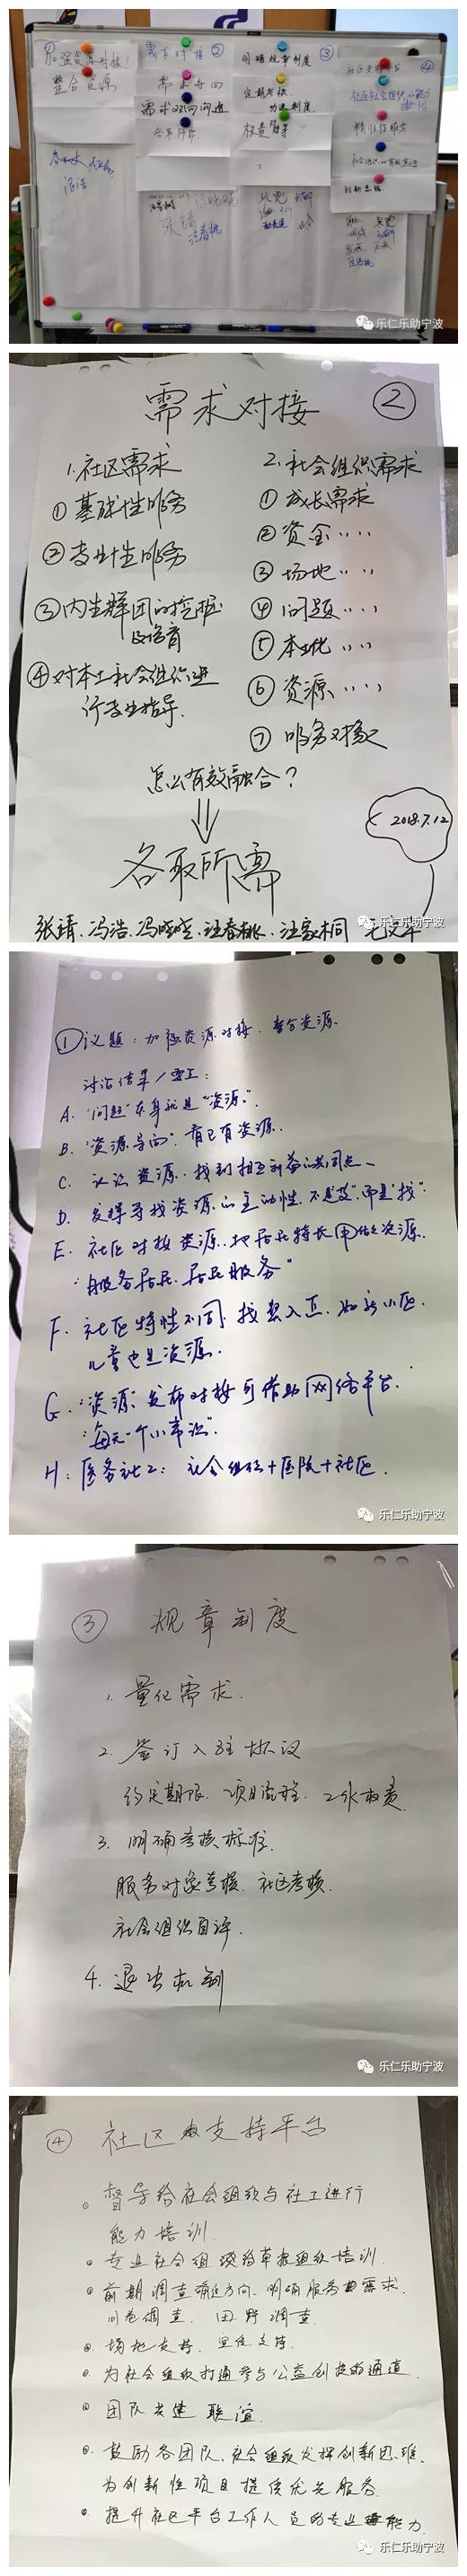 ①
加强资源对接！
整合资源
需求对接 ②
需求导向
需求双向沟通
各取所需
③
明确规章制度
定期考核
权责
④
精准性服务
乐仁乐助宁波
需求对接 ②
1.社区需求
①基础性服务
②专业性服务
③内生群团的挖掘
及培育
④对本土社会组织进
行专业指导.
2.社会组织需求
①成长需求
②资金‥‥
③场地‥‥
④问题‥‥
⑤本土化‥‥
⑥资源‥‥
⑦服务对象
怎么有效融合？
各取所需
2018.7.12
张靖、冯浩、冯晓晓、汪春桃、汪家桐
乐仁乐助宁波
①议题：加强资源对接、整合资源.
讨论结果/要上：
A. "问题"本身就是"资源".
B. "资源导向". 看已有资源.
C. 认识资源. 找到相互利益的共同点、
D. 发挥寻找资源的主动性. 不是"发"，而是"找".
E. 社区对接资源. 把居民特长用做资源.
"服务居民. 居民服务"
F. 社区特性不同. 找契入点. 如新小区.
儿童也是资源.
G. "资源"发布对接可借助网络平台.
"每天一个小事说".
H：医务社工：社会组织＋医院＋社区.
乐仁乐助宁波
③ 规章制度
1. 量化需求.
2. 签订入驻协议
约定期限. 项目流程. 工作权责.
3. 明确考核标准.
服务对象考核. 社区考核.
社会组织自评.
4. 退出机制
乐仁乐助宁波
④ 社区支持平台
督导给社会组织与社工进行
能力培训.
专业社会组织给草根组织培训.
前期调查确定方向、明确服务需求.
问卷调查. 田野调查.
场地支持. 宣传支持.
为社会组织打通参与公益创投的通道.
团队共建 联谊.
鼓励各团队、社会组织发挥创新思维.
为创新性项目提供优先服务.
提升社区平台工作人员的专业能力.
乐仁乐助宁波